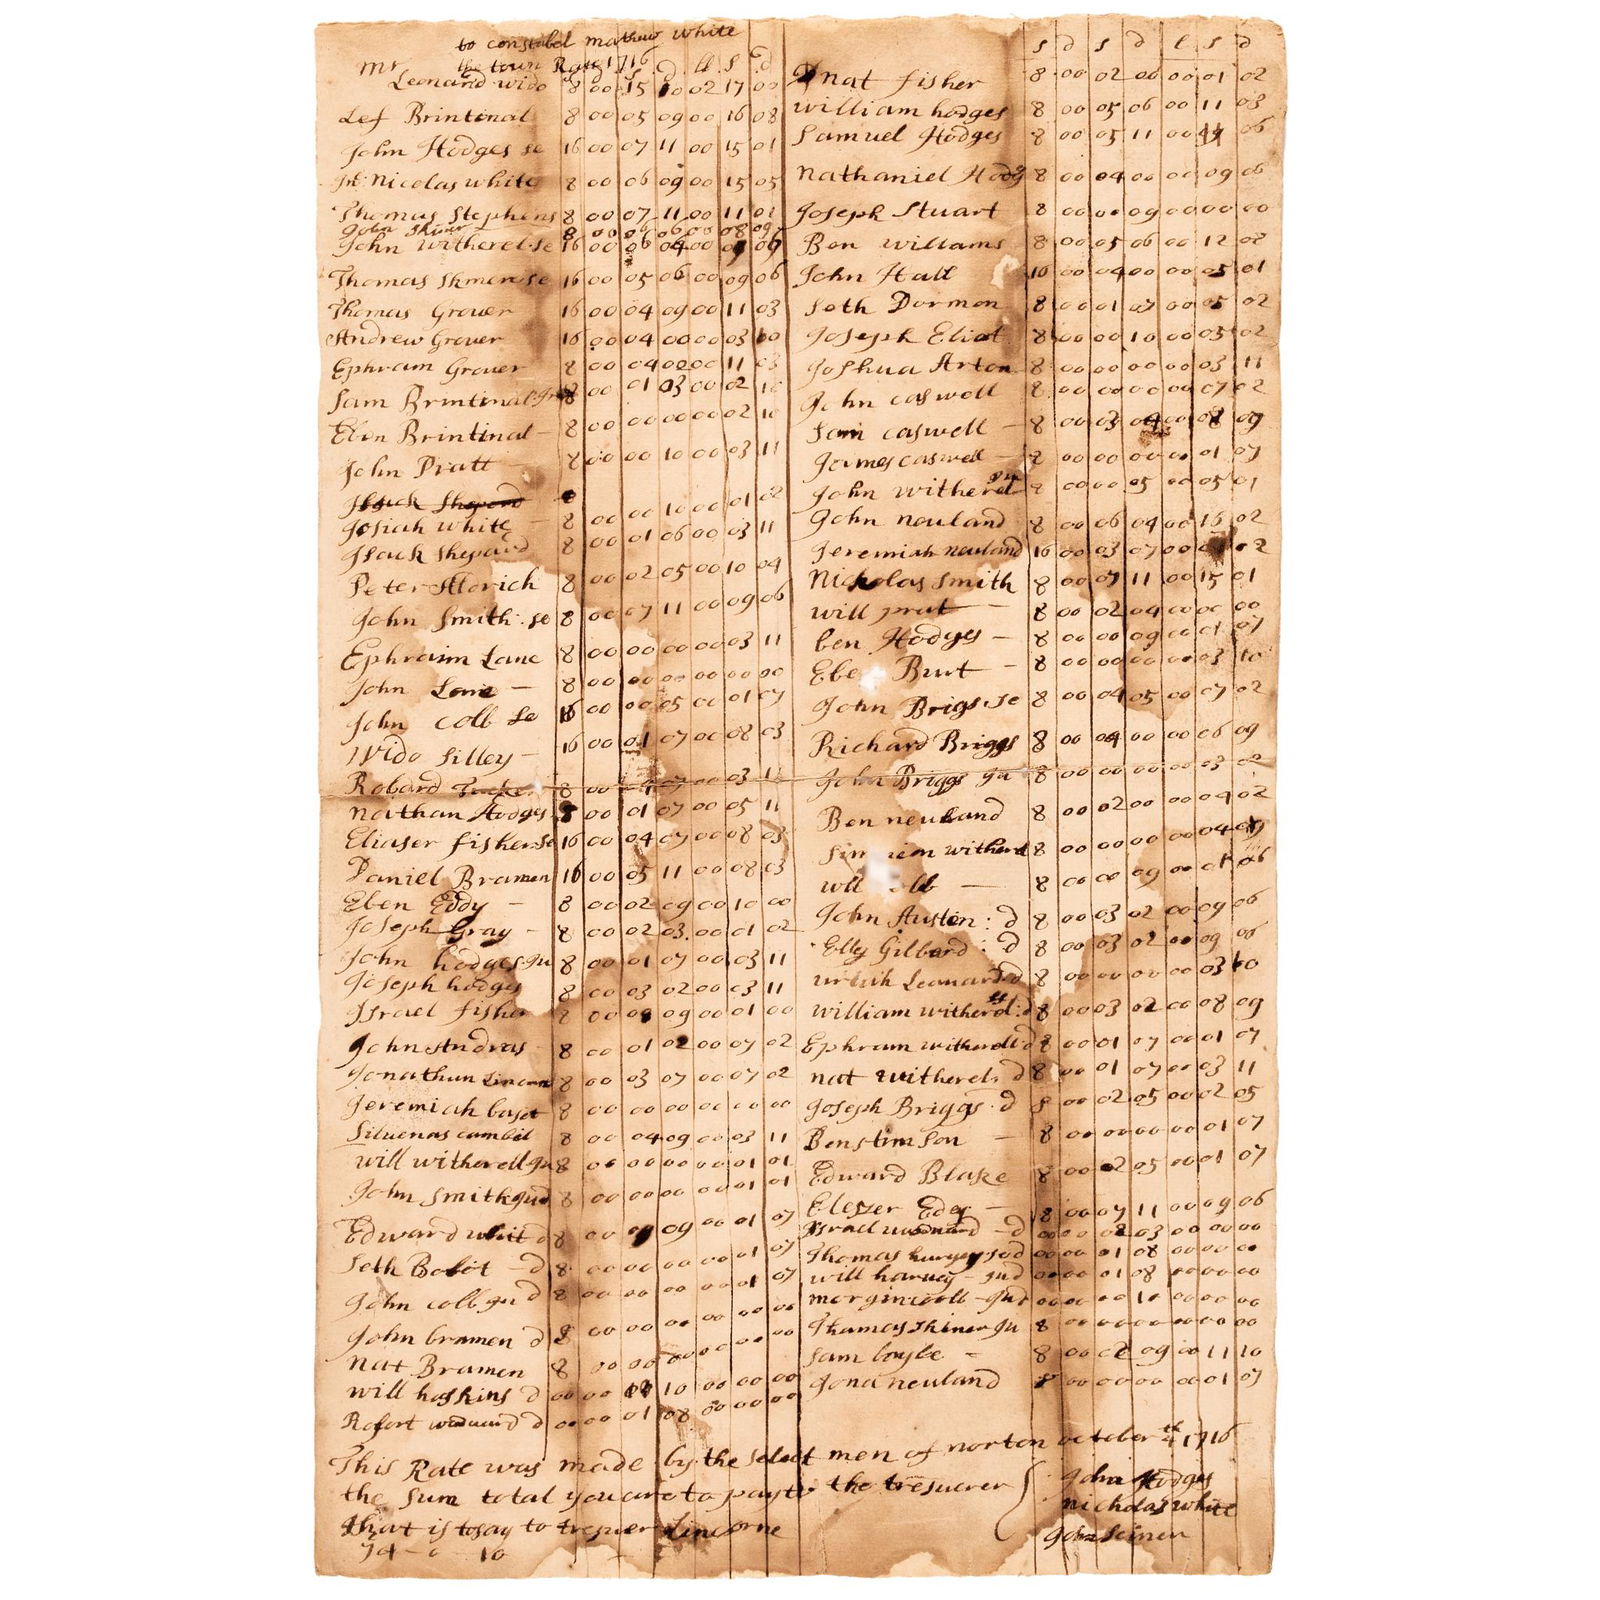 to constabel mathew white
mr the town Rate 1716 s d ll s d
Leonard wido 8 00 15 10 02 17 00
Lef Brintnal 8 00 05 09 00 16 08
John Hodges se 16 00 07 11 00 15 01
Nicolas white 8 00 06 09 00 15 05
Thomas Stephens 8 00 07 11 00 11 01
John Skiner 8 00 06 06 00 08 09
John witherel se 16 00 06 04 00 09
Thomas Skiner se 16 00 05 06 00 09 06
Thomas Grover 16 00 04 09 00 11 03
Andrew Grover 16 00 04 00 00 03 10
Ephraim Grover 8 00 04 00 00 11 03
Sam Brintinal Ju 8 00 01 03 00 02 10
Eben Brintinal - 8 00 00 00 00 02 10
John Pratt - 8 00 00 10 00 03 11
Isack Sheperd
Josiah white - 8 00 00 10 00 01 02
Isack Shepard 8 00 01 06 00 03 11
Peter Aldrich 8 00 02 05 00 10 04
John Smith se 8 00 07 11 00 09 06
Ephraim Lane 8 00 00 00 00 03 11
John Lane - 8 00 00 00 00 00 00
John Cobb se 16 00 00 05 00 01 07
Wido Silley - 16 00 01 07 00 08 03
Robard Tucker 8 00 07 00 03 11
Nathan Hodges 8 00 01 07 00 05 11
Eliaser fisher se 16 00 04 07 00 08 03
Daniel Bramen 16 00 05 11 00 08 03
Eben Eddy - 8 00 02 09 00 10 00
Joseph Gray - 8 00 02 03 00 01 02
John hodges Ju 8 00 01 07 00 03 11
Joseph hodges 8 00 03 02 00 03 11
Israel fisher 8 00 00 09 00 01 00
John Andras 8 00 01 02 00 07 02
Jonathan Lincorn 8 00 03 07 00 07 02
Jeremiah baset 8 00 00 00 00 00 00
Siluenas cambil 8 00 04 09 00 03 11
will witherell Ju 8 00 00 00 00 01 01
John Smith Jud 8 00 00 00 00 01 01
Edward whit d 8 00 09 00 01 07
Seth Bobit - d 8 00 00 00 00 01 07
John cobb Ju d 8 00 00 00 00 01 07
John bramen d 8 00 00 00 00 00 00
Nat Bramen 8 00 00 00 00 00 00
will hoskins d 00 00 10 00 00 00
Robort d 00 00 01 08 00 00 00
s d s d l s d
nat fisher 8 00 02 00 00 01 02
william hodges 8 00 05 06 00 11 03
Samuel Hodges 8 00 05 11 00 06
Nathaniel Hodg 8 00 04 00 00 09 06
Joseph Stuart 8 00 00 09 00 00 00
Ben williams 8 00 05 06 00 12 02
John Hall 16 00 04 00 00 05 01
Seth Dormon 8 00 01 07 00 05 02
Joseph Eliot 8 00 00 10 00 05 02
Joshua Arton 8 00 00 00 00 03 11
John caswell 8 00 00 00 00 07 02
Sam caswell - 8 00 03 04 00 08 09
James caswell - 8 00 00 00 00 01 07
John witherel Ju 8 00 00 05 00 05 01
John neuland 8 00 06 04 00 16 02
Jeremiah neuland 16 00 03 07 00 02
Nickolas Smith 8 00 07 11 00 15 01
will prat - 8 00 02 04 00 00 00
ben Hodges - 8 00 00 09 00 01 07
Eben Brut - 8 00 00 00 00 03 10
John Brigs se 8 00 04 05 00 07 02
Richard Briggs 8 00 04 00 00 06 09
John Briggs Ju 8 00 00 00 00 03
Ben neuland 8 00 02 00 00 04 02
witherel 8 00 00 00 00 04
will - 8 00 00 09 00 01 06
John Austin : d 8 00 03 02 00 09 06
Elly Gilbard : d 8 00 03 02 00 09 06
Leonard d 8 00 00 00 00 03 10
william witherel : d 8 00 03 02 00 08 09
Ephram witherell d 8 00 01 07 00 01 07
nat witherel d 8 00 01 07 00 03 11
Joseph Briggs d 8 00 02 05 00 02 05
Ben stimson - 8 00 00 00 00 01 07
Edward Blake 8 00 02 05 00 01 07
Eleszer Edey - 8 00 07 11 00 09 06
Israel - d 00 00 03 00 00 00
Thomas d 00 00 01 08 00 00 00
will harvey - Jud 00 00 01 08 00 00 00
- Jud 00 00 00 10 00 00 00
Thomas Skiner Ju 8 00 00 00 00 00 00
Sam - 8 00 02 09 00 11 10
Jona neuland 8 00 00 00 00 01 07
This Rate was made by the select men of norton october 1716
the sum total you are to pay to the tresuerer John Hodges
nicholas white
that is to say to tresuer Lincorne John Skiner
74 - 0 - 10